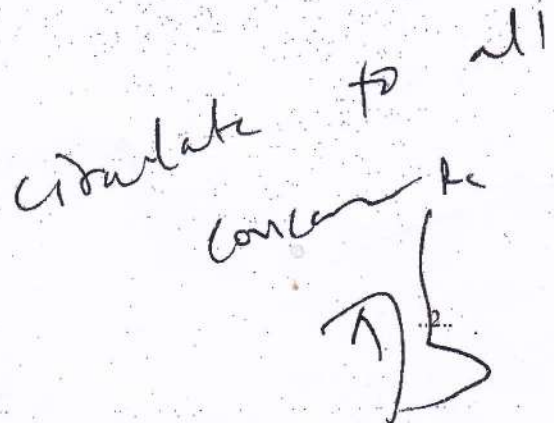 circulate to all
concerned
..2..